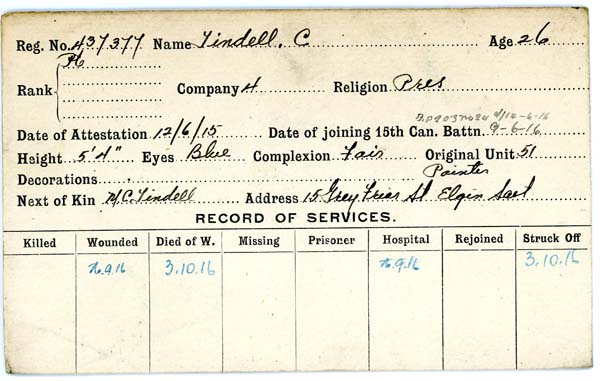 Reg. No. 437377 Name Tindell, C Age 26
Rank Pte Company 4 Religion Pres
4/15-6-16
Date of Attestation 12/6/15 Date of joining 15th Can. Battn. 9-6-16
Height 5'4" Eyes Blue Complexion Fair Original Unit 51
Decorations Painter
Next of Kin M/C. Tindell Address 15 Grey Friar St Elgin Scot
RECORD OF SERVICES.
Killed Wounded Died of W. Missing Prisoner Hospital Rejoined Struck Off
26.9.16 3.10.16 26.9.16 3.10.16